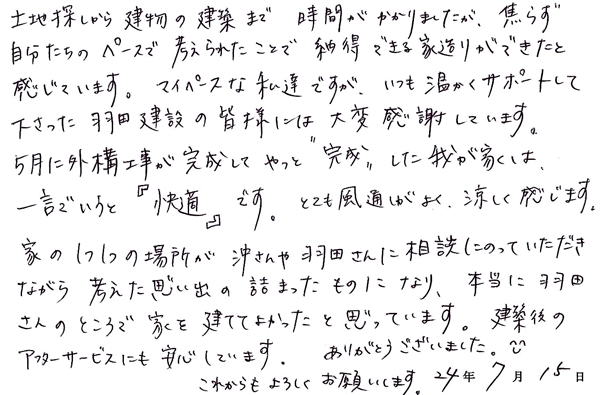 土地探しから 建物の建築まで 時間がかかりましたが、焦らず
自分たちの ペースで 考えられたことで 納得できる家造りができたと
感じています。 マイペースな私達ですが、いつも温かくサポートして
下さった 羽田建設の皆様には 大変感謝しています。
5月に外構工事が完成して やっと"完成"した我が家は、
一言でいうと『快適』です。 とても風通しがよく、涼しく感じます。
家の1つ1つの場所が 沖さんや羽田さんに相談にのっていただき
ながら 考えた思い出の詰まったものになり、本当に羽田
さんのところで 家を建ててよかったと思っています。 建築後の
アフターサービスにも安心しています。 ありがとうございました。
これからもよろしくお願いします。 24年 7月 15日